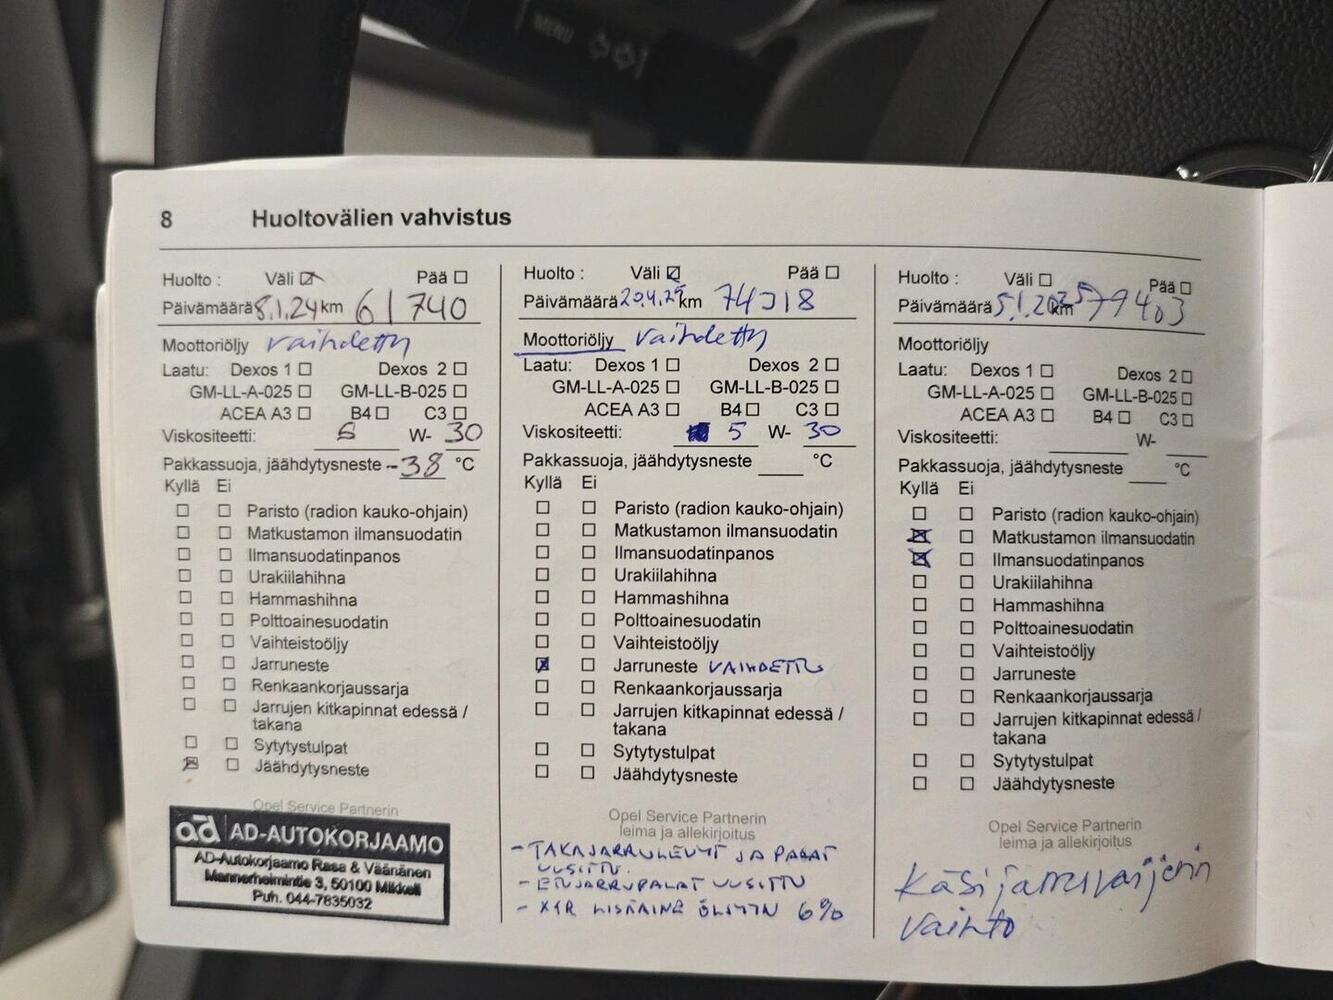 MENU
8 Huoltovälien vahvistus
Huolto : Väli ☒ Pää ☐
Päivämäärä 8.1.24 km 61740
Moottoriöljy vaihdettu
Laatu: Dexos 1 ☐ Dexos 2 ☐
GM-LL-A-025 ☐ GM-LL-B-025 ☐
ACEA A3 ☐ B4 ☐ C3 ☐
Viskositeetti: 5 W- 30
Pakkassuoja, jäähdytysneste -38 °C
Kyllä Ei
☐ ☐ Paristo (radion kauko-ohjain)
☐ ☐ Matkustamon ilmansuodatin
☐ ☐ Ilmansuodatinpanos
☐ ☐ Urakiilahihna
☐ ☐ Hammashihna
☐ ☐ Polttoainesuodatin
☐ ☐ Vaihteistoöljy
☐ ☐ Jarruneste
☐ ☐ Renkaankorjaussarja
☐ ☐ Jarrujen kitkapinnat edessä /
takana
☐ ☐ Sytytystulpat
☒ ☐ Jäähdytysneste
Opel Service Partnerin
ad AD-AUTOKORJAAMO
AD-Autokorjaamo Rasa & Väänänen
Mannerheimintie 3, 50100 Mikkeli
Puh. 044-7835032
Huolto : Väli ☒ Pää ☐
Päivämäärä km
Moottoriöljy vaihdettu
Laatu: Dexos 1 ☐ Dexos 2 ☐
GM-LL-A-025 ☐ GM-LL-B-025 ☐
ACEA A3 ☐ B4 ☐ C3 ☐
Viskositeetti: 5 W- 30
Pakkassuoja, jäähdytysneste °C
Kyllä Ei
☐ ☐ Paristo (radion kauko-ohjain)
☐ ☐ Matkustamon ilmansuodatin
☐ ☐ Ilmansuodatinpanos
☐ ☐ Urakiilahihna
☐ ☐ Hammashihna
☐ ☐ Polttoainesuodatin
☐ ☐ Vaihteistoöljy
☒ ☐ Jarruneste VAIHDETTU
☐ ☐ Renkaankorjaussarja
☐ ☐ Jarrujen kitkapinnat edessä /
takana
☐ ☐ Sytytystulpat
☐ ☐ Jäähdytysneste
Opel Service Partnerin
leima ja allekirjoitus
- TAKAJARRULEVYT JA PALAT
UUSITTU.
- ETUJARRUPALAT UUSITTU
- X1R LISÄAINE ÖLJYYN 6%
Huolto : Väli ☐ Pää ☐
Päivämäärä 5.1.2025 km 79403
Moottoriöljy
Laatu: Dexos 1 ☐ Dexos 2 ☐
GM-LL-A-025 ☐ GM-LL-B-025 ☐
ACEA A3 ☐ B4 ☐ C3 ☐
Viskositeetti: W-
Pakkassuoja, jäähdytysneste °C
Kyllä Ei
☐ ☐ Paristo (radion kauko-ohjain)
☒ ☐ Matkustamon ilmansuodatin
☒ ☐ Ilmansuodatinpanos
☐ ☐ Urakiilahihna
☐ ☐ Hammashihna
☐ ☐ Polttoainesuodatin
☐ ☐ Vaihteistoöljy
☐ ☐ Jarruneste
☐ ☐ Renkaankorjaussarja
☐ ☐ Jarrujen kitkapinnat edessä /
takana
☐ ☐ Sytytystulpat
☐ ☐ Jäähdytysneste
Opel Service Partnerin
leima ja allekirjoitus
Käsijarruvaijerin
vaihto